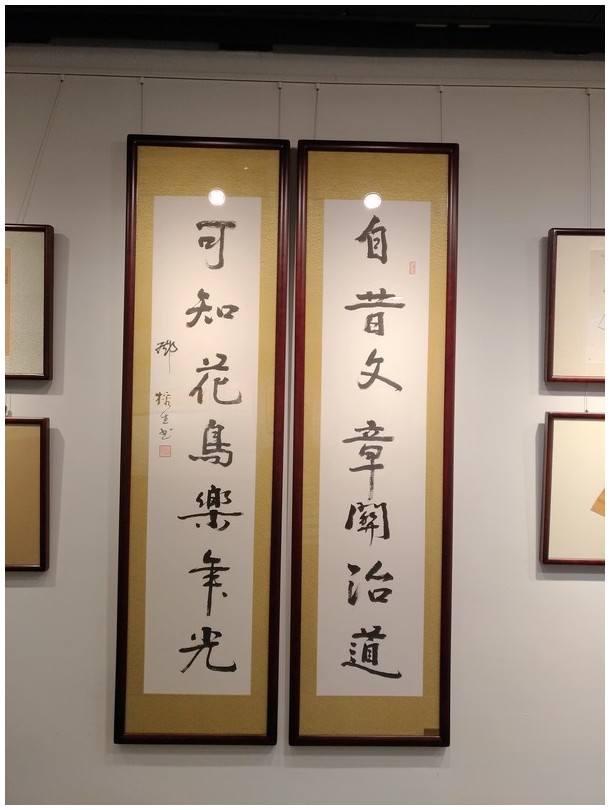 自昔文章關治道
可知花鳥樂年光